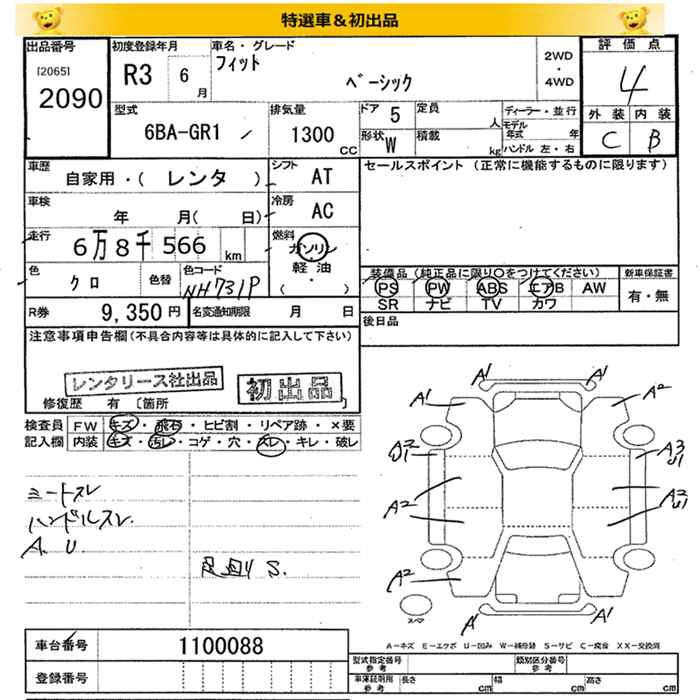 特選車&初出品
出品番号
[2065]
2090
初度登録年月
R3 6月
車名・グレード
フィット
ベーシック
2WD・4WD
評価点
4
外装 内装
C B
型式
6BA-GR1
排気量
1300 CC
ドア 5
形状 W
定員 人
積載 kg
ディーラー・並行
モデル年式 年
ハンドル 左・右
車歴
自家用・(レンタ)
シフト AT
車検
年 月(日)
冷房 AC
走行
6万8千566 km
燃料
ガソリン
軽油
( ・ )
色
クロ
色替
色コード
NH731P
R券 9,350円
名変通知期限 月 日
セールスポイント (正常に機能するものに限ります)
装備品(純正品に限り○をつけてください)
PS PW ABS エアB AW
SR ナビ TV カワ
新車保証書
有・無
後日品
注意事項申告欄(不具合内容等は具体的に記入して下さい)
レンタリース社出品
初出品
修復歴 有 [箇所
検査員記入欄
FW キズ・飛石・ヒビ割・リペア跡・×要
内装 キズ・汚レ・コゲ・穴・スレ・キレ・破レ
シートスレ
ハンドルスレ
A. U.
足廻り S.
A1 A1
A1 A2
A2 U1 A3 U1
A2 A2 U1
A2
A1 A1
スペア
A―キズ E―エクボ U―凹み W―補修跡 S―サビ C―腐食 XX―交換済
車台番号 1100088
登録番号
型式指定番号 参考
類別区分番号 参考
車庫証明用 参考
長さ cm 幅 cm 高さ cm